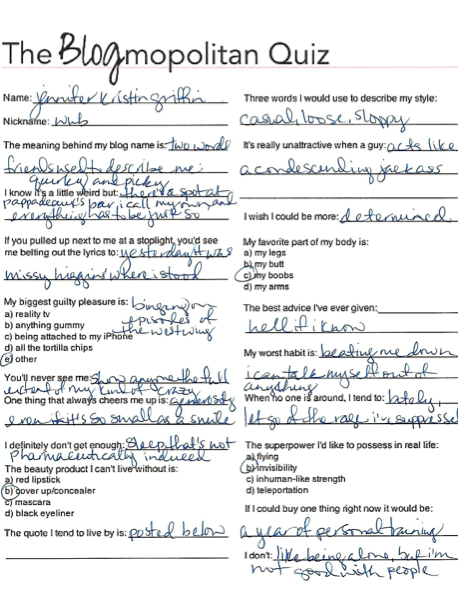 The Blogmopolitan Quiz
Name: jennifer kristin griffin
Nickname: wnb
The meaning behind my blog name is: two words
friends used to describe me:
quirky and picky
I know it's a little weird but: there's a spot at
pappadeaux's bar i call my own and
everything has to be just so
If you pulled up next to me at a stoplight, you'd see
me belting out the lyrics to: yesterday it was
missy higgins' where i stood
My biggest guilty pleasure is: binging on
episodes of
the west wing
a) reality tv
b) anything gummy
c) being attached to my iPhone
d) all the tortilla chips
e) other
You'll never see me: show anyone the full
extent of my kind of crazy
One thing that always cheers me up is: generosity
even if it's so small as a smile
I definitely don't get enough: sleep that's not
pharmaceutically induced
The beauty product I can't live without is:
a) red lipstick
b) cover up/concealer
c) mascara
d) black eyeliner
The quote I tend to live by is: posted below
Three words I would use to describe my style:
casual, loose, sloppy
It's really unattractive when a guy: acts like
a condescending jackass
I wish I could be more: determined
My favorite part of my body is:
a) my legs
b) my butt
c) my boobs
d) my arms
The best advice I've ever given:
hell if i know
My worst habit is: beating me down
i can talk myself out of
anything
When no one is around, I tend to: lately,
let go of the rage i've suppresse
The superpower I'd like to possess in real life:
a) flying
b) invisibility
c) inhuman-like strength
d) teleportation
If I could buy one thing right now it would be:
a year of personal training
I don't: like being alone, but i'm
not good with people